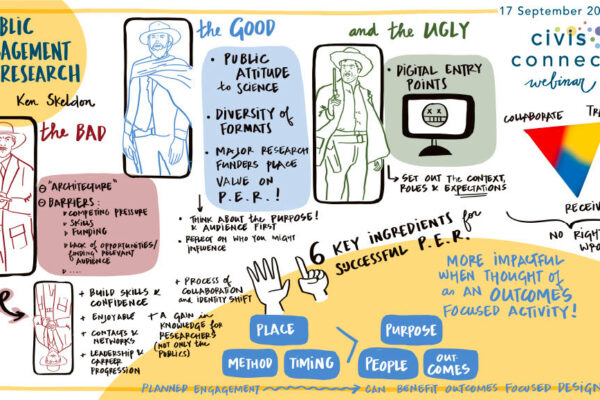 17 September 20
BLIC
GAGEMENT
RESEARCH
Ken Skeldon
the GOOD
• PUBLIC
ATTITUDE
to SCIENCE
• DIVERSITY of
FORMATS
• MAJOR RESEARCH
FUNDERS PLACE
VALUE ON
P.E.R.!
• THINK ABOUT the PURPOSE!
& AUDIENCE FIRST
• REFLECT ON WHO YOU MIGHT
INFLUENCE
and the UGLY
• DIGITAL ENTRY
POINTS
SET OUT the CONTEXT,
ROLES & EXPECTATIONS
civis
connec
webinar
COLLABORATE
TR
RECEIV
NO RIGHT
WRO
the BAD
"ARCHITECTURE"
BARRIERS:
COMPETING PRESSURE
SKILLS
FUNDING
LACK OF OPPORTUNITIES/
FINDING RELEVANT
AUDIENCE
....
+ BUILD SKILLS &
CONFIDENCE
+ ENJOYABLE
+ CONTACTS &
NETWORKS
+ LEADERSHIP &
CAREER
PROGRESSION
+ PROCESS of
COLLABORATION
and IDENTITY SHIFT
+ A GAIN in
KNOWLEDGE for
RESEARCHERS
(NOT ONLY the
PUBLICS)
6 KEY INGREDIENTS for
SUCCESSFUL P.E.R.
PLACE
METHOD
TIMING
PURPOSE
PEOPLE
OUT
COMES
MORE IMPACTFUL
WHEN THOUGHT of
as AN OUTCOMES
FOCUSED ACTIVITY!
PLANNED ENGAGEMENT
CAN BENEFIT OUTCOMES FOCUSED DESIGN